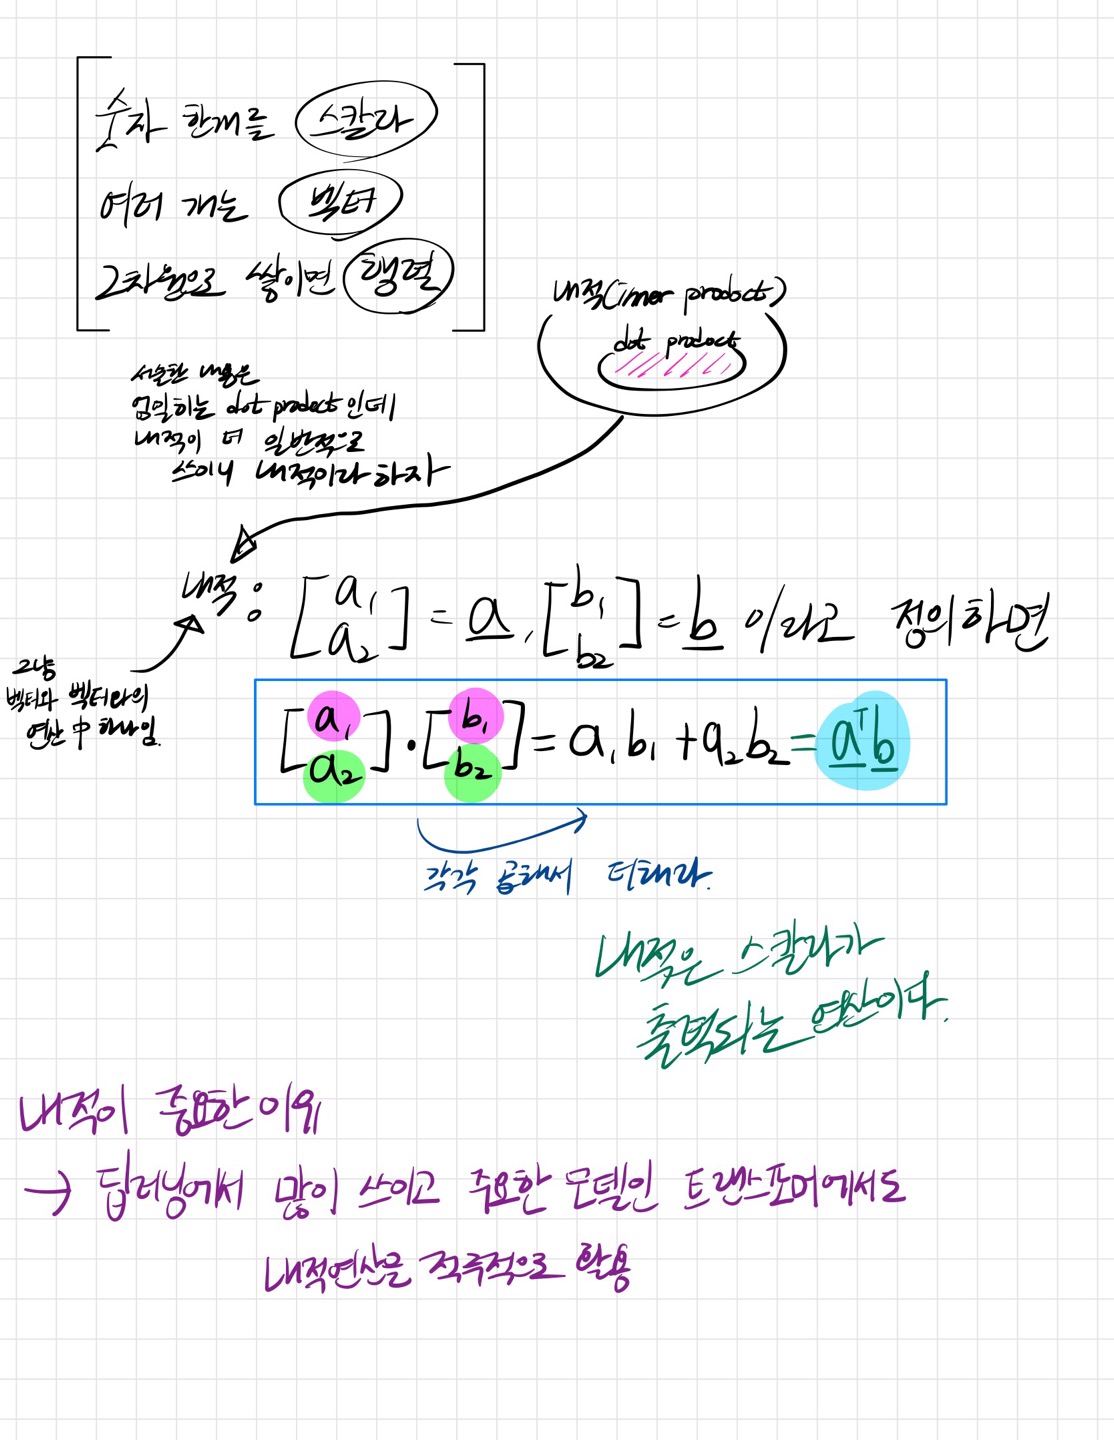 숫자 한개를 스칼라
여러 개는 벡터
2차원으로 쌓이면 행렬
내적(inner product)
dot product
서술한 내용은
엄밀히는 dot product인데
내적이 더 일반적으로
쓰이니 내적이라 하자
내적: [a₁ a₂] = a, [b₁ b₂] = b 이라고 정의하면
그냥
벡터와 벡터와의
연산 中 하나임.
[a₁ a₂] · [b₁ b₂] = a₁b₁ + a₂b₂ = aᵀb
각각 곱해서 더해라.
내적은 스칼라가
출력되는 연산이다.
내적이 중요한 이유
→ 딥러닝에서 많이 쓰이고 주요한 모델인 트랜스포머에서도
내적연산을 적극적으로 활용